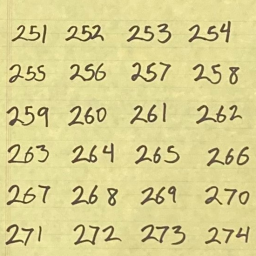 251 252 253 254
255 256 257 258
259 260 261 262
263 264 265 266
267 268 269 270
271 272 273 274